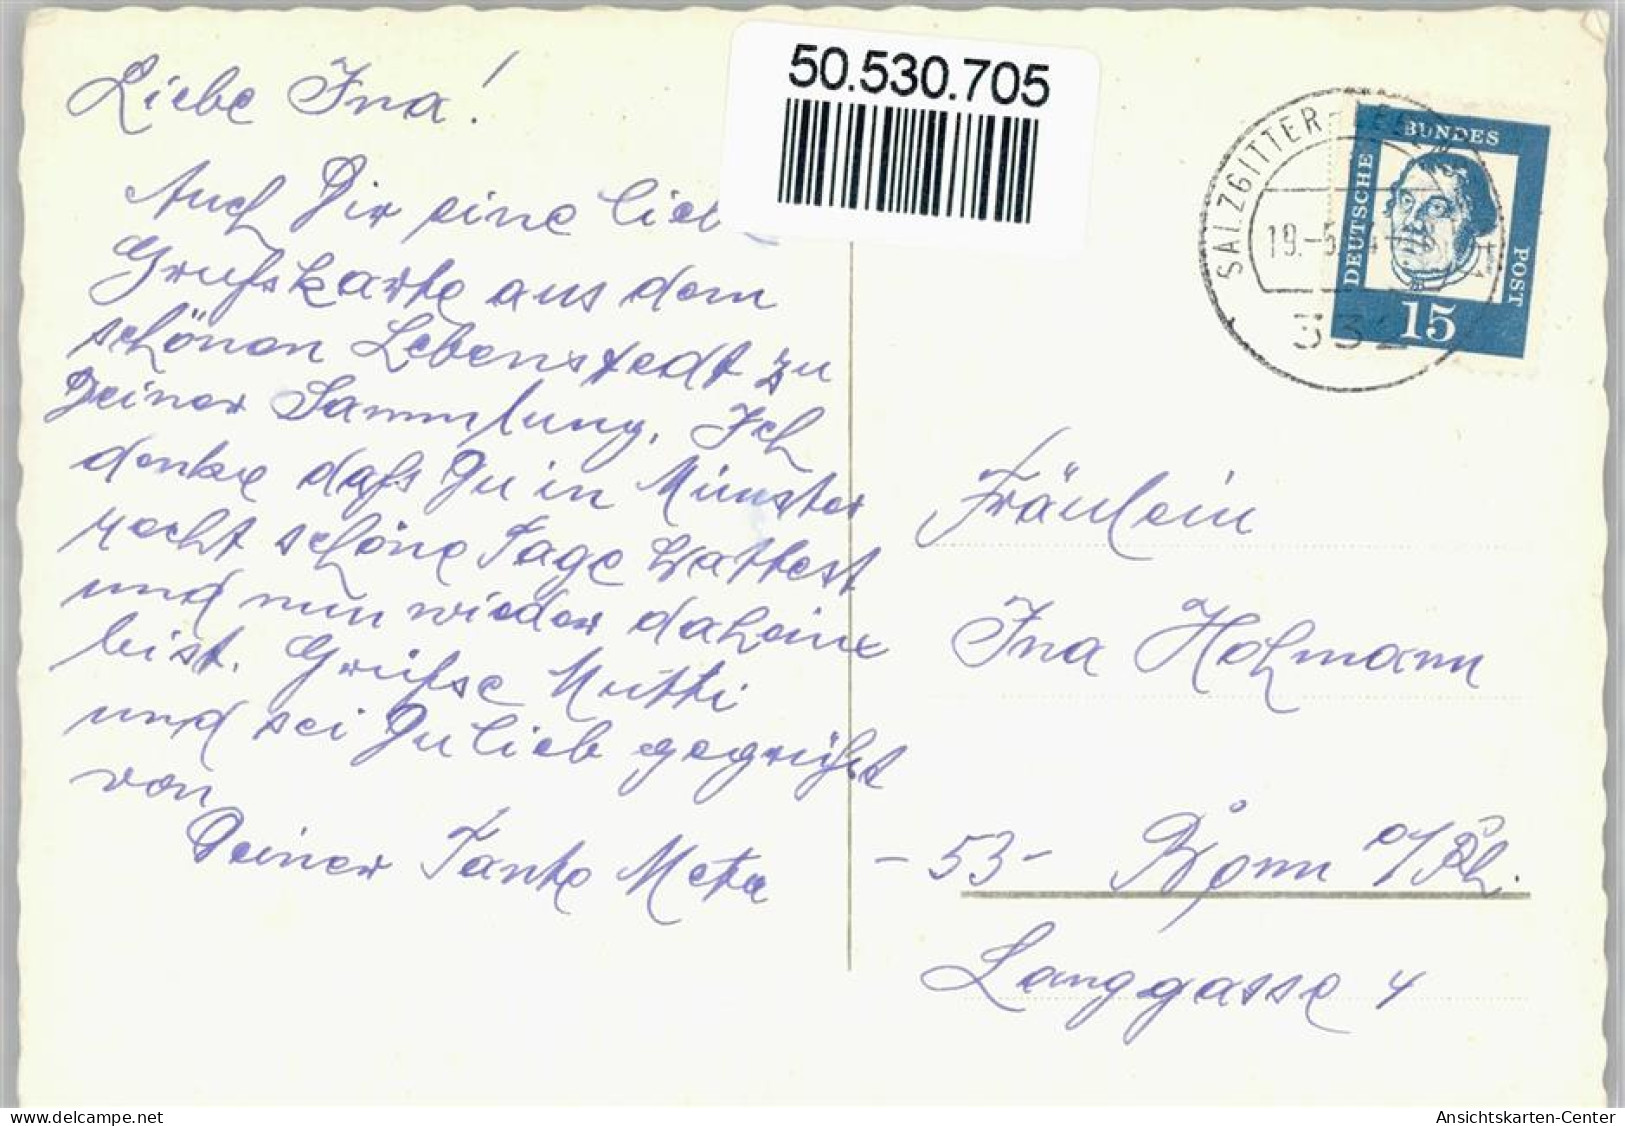 Liebe Ina!
Auch Dir eine
Grußkarte aus dem
schönen Lebenstedt zu
Deiner Sammlung. Ich
denke daß Du in Münster
recht schöne Tage hattest
und nun wieder daheim
bist. Grüße Mutti
und sei Du lieb gegrüßt
von
Deiner Tante Meta
50.530.705
SALZGITTER-
19.-5.
DEUTSCHE BUNDES POST
15
Fräulein
Ina Hohmann
-53- Bonn a/Rh.
Langgasse 4
www.delcampe.net
Ansichtskarten-Center